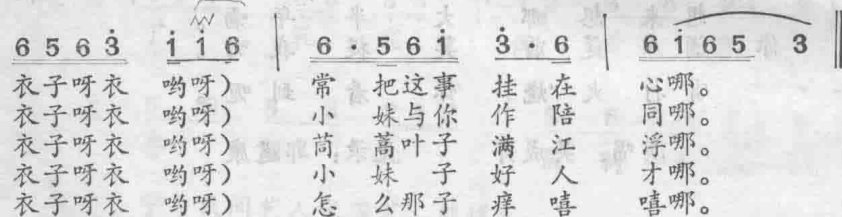 6 5 6 3̇ i̇ i̇ 6 | 6 · 5 6 i̇ 3̇ · 6 | 6 i̇ 6 5 3 ‖
衣子呀衣 哟呀） 常 把这事 挂 在 心哪。
衣子呀衣 哟呀） 小 妹与你 作 陪 同哪。
衣子呀衣 哟呀） 茼 蒿叶子 满 江 浮哪。
衣子呀衣 哟呀） 小 妹 子 好 人 才哪。
衣子呀衣 哟呀） 怎 么那子 痒 嘻 嘻哪。